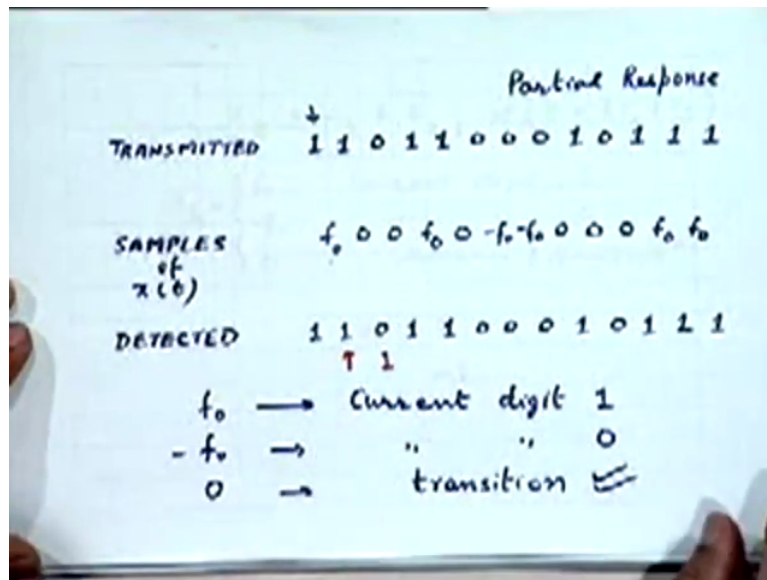 Partial Response
↓
TRANSMITTED 1 1 0 1 1 0 0 0 1 0 1 1 1
SAMPLES f₀ 0 0 f₀ 0 -f₀ -f₀ 0 0 0 f₀ f₀
of
x(t)
DETECTED 1 1 0 1 1 0 0 0 1 0 1 1 1
↑ 1
f₀ → Current digit 1
- f₀ → " " 0
0 → transition